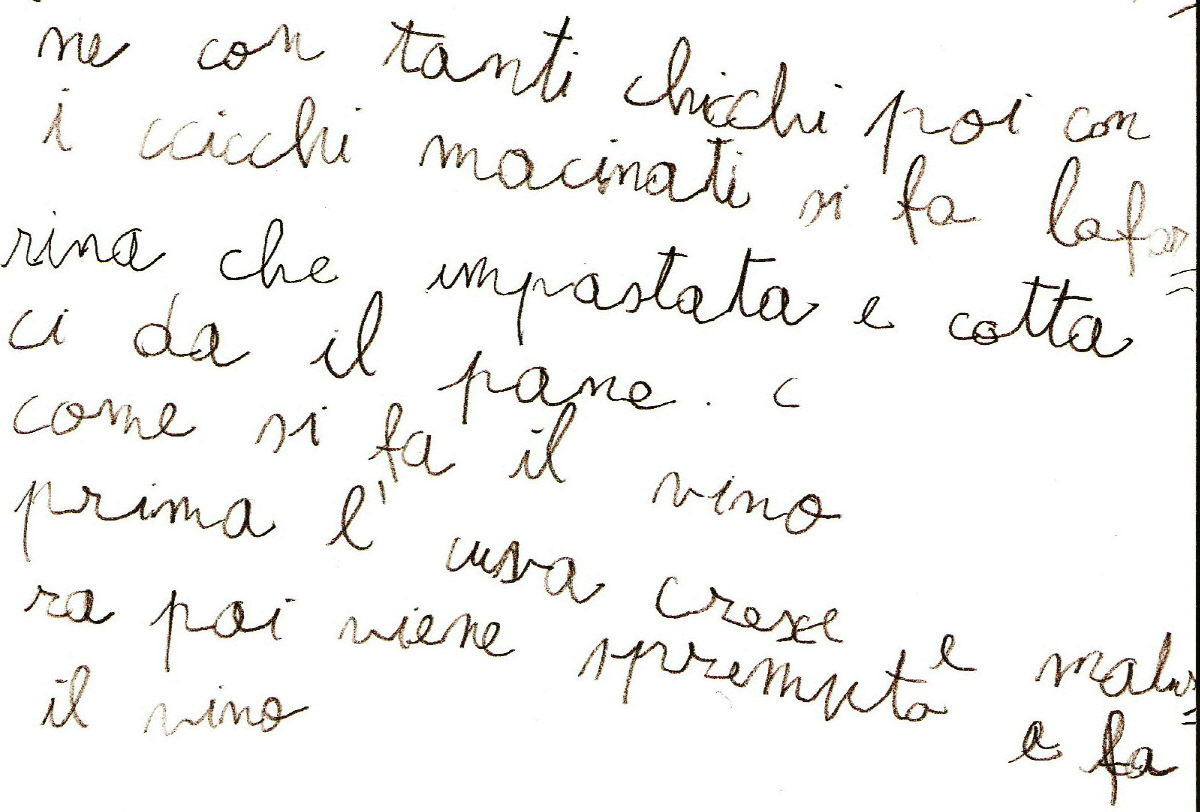 ne con tanti chicchi poi con
i ccicchi macinati si fa lafar=
rina che impastata e cotta
ci da il pane. c
come si fa il vino
prima l' uva cresce e matu=
ra poi viene spremuta e fa
il vino